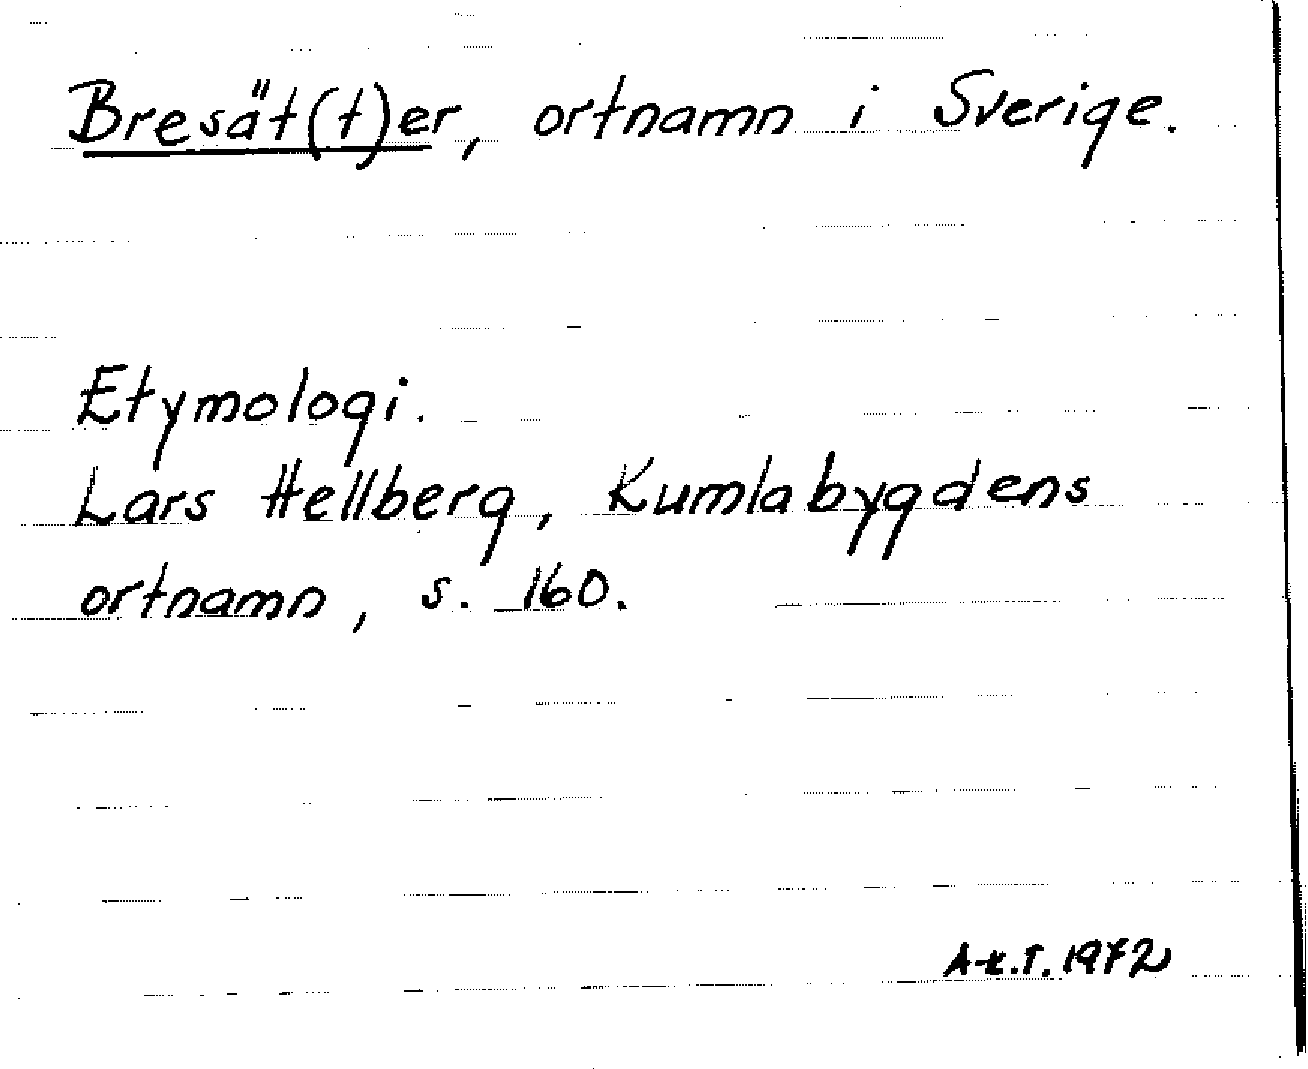 Bresät(t)er, ortnamn i Sverige.
Etymologi.
Lars Hellberg, Kumlabygdens
ortnamn, s. 160.
A-K.T. 1972